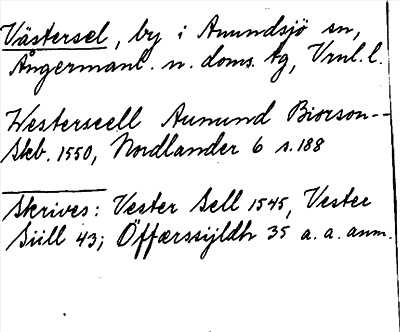 Västersel, by i Anundsjö sn,
Ångermanl. n. doms. tg, Vrnl. l.
Westerseell Aumund Biorson--
Skb. 1550, Nordlander 6 s. 188
Skrives: Vester Sell 1545, Vester
Siill 43; Öffærssijldh 35 a. a. anm.